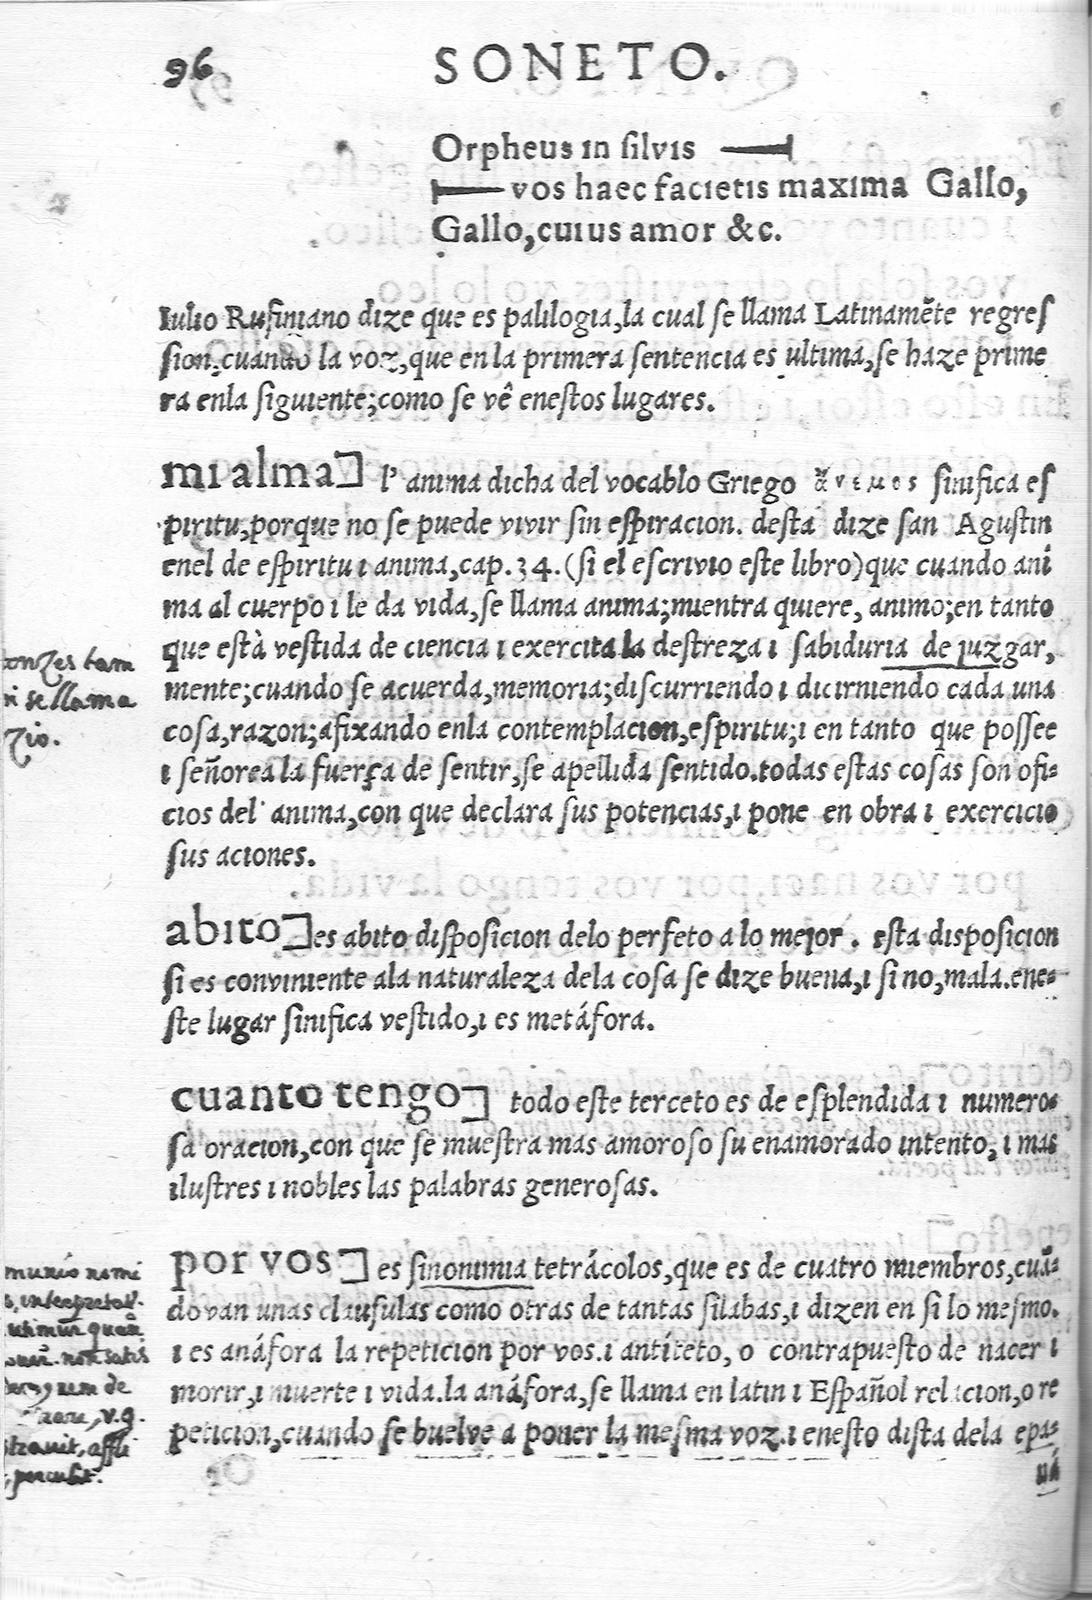 96 SONETO.
Orpheus in silvis
vos haec facietis maxima Gallo,
Gallo, cuius amor &c.
Iulio Rufiniano dize que es palilogia, la cual se llama Latinamẽte regres
sion, cuando la voz, que en la primera sentencia es ultima, se haze prime
ra enla siguiente; como se vê enestos lugares.
mi alma] l' anima dicha del vocablo Griego ἄνεμος sinifica es
piritu, porque no se puede vivir sin espiracion. desta dize san Agustin
enel de espiritu i anima, cap. 34. (si el escrivio este libro) que cuando ani
ma al cuerpo i le da vida, se llama anima; mientra quiere, animo; en tanto
que està vestida de ciencia i exercita la destreza i sabiduria de juzgar,
mente; cuando se acuerda, memoria; discurriendo i dicirniendo cada una
cosa, razon; afixando enla contemplacion, espiritu; i en tanto que possee
i señorea la fuerça de sentir, se apellida sentido. todas estas cosas son ofi=
cios del' anima, con que declara sus potencias, i pone en obra i exercicio
sus aciones.
onzes tam
i se llama
zio.
abito] es abito disposicion delo perfeto a lo mejor. esta disposicion
si es conviniente ala naturaleza dela cosa se dize buena, i si no, mala. ene=
ste lugar sinifica vestido, i es metáfora.
cuanto tengo] todo este terceto es de esplendida i numero=
sa oracion, con que se muestra mas amoroso su enamorado intento, i mas
ilustres i nobles las palabras generosas.
por vos] es sinonimia tetrácolos, que es de cuatro miembros, cuã=
do van unas clausulas como otras de tantas silabas, i dizen en si lo mesmo.
i es anáfora la repeticion por vos. i antíteto, o contrapuesto de nacer i
morir, i muerte i vida. la anáfora, se llama en latin i Español relacion, o re
peticion, cuando se buelve a poner la mesma voz. i enesto dista dela epa=
ná
interpretat.
utimur
non satis
rem de
v.g.